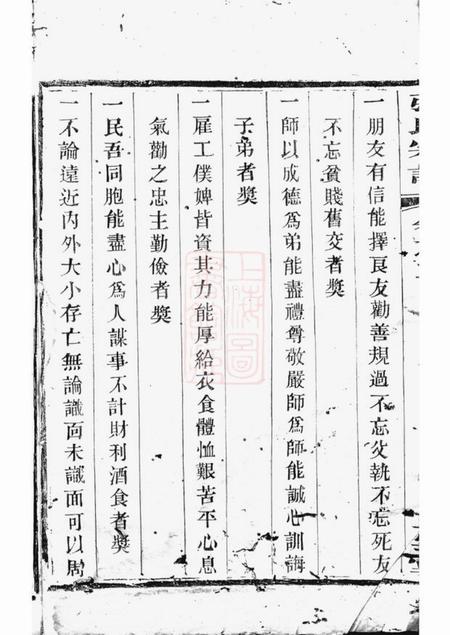 張氏宗譜
一朋友有信能擇良友勸善規過不忘父執不忘死友
不忘貧賤舊交者獎
一師以成德爲弟能盡禮尊敬嚴師爲師能誠心訓誨
子弟者獎
一雇工僕婢皆資其力能厚給衣食體恤艱苦平心息
氣勸之忠主勤儉者獎
一民吾同胞能盡心爲人謀事不計財利酒食者獎
一不論遠近內外大小存亡無論識面未識面可以周